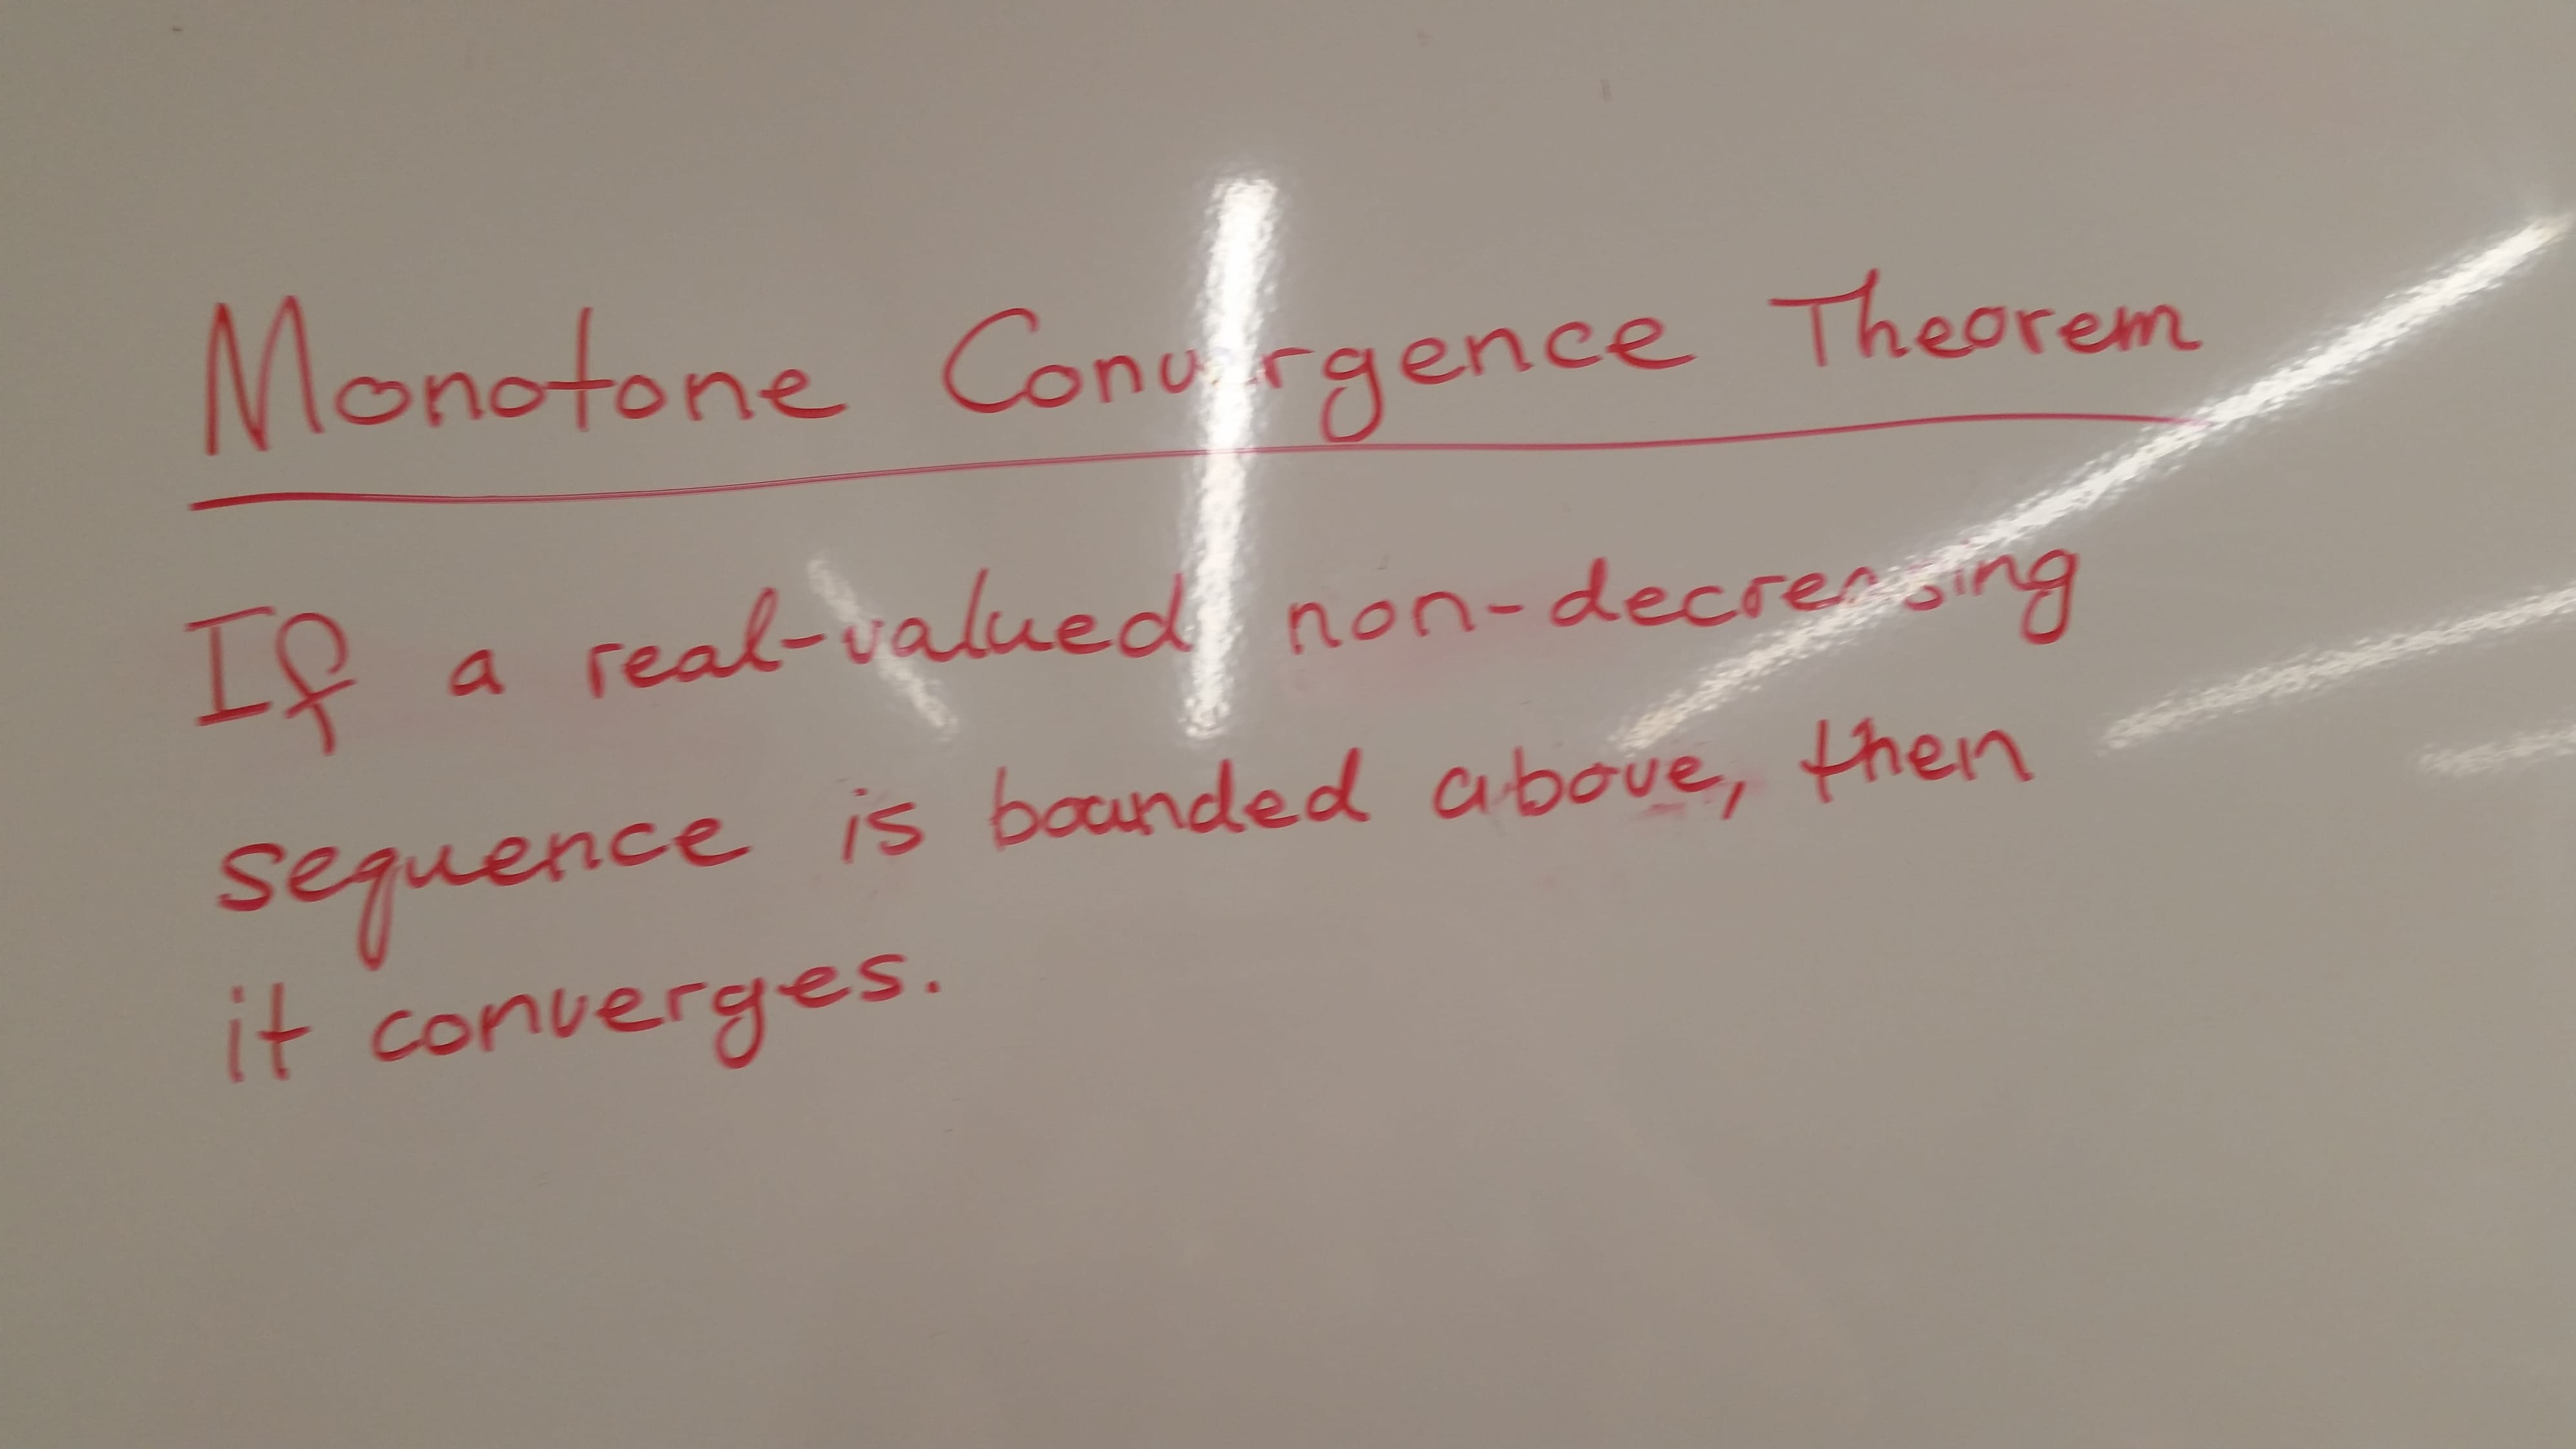 Monotone Convergence Theorem
If a real-valued non-decreasing
sequence is bounded above, then
it converges.